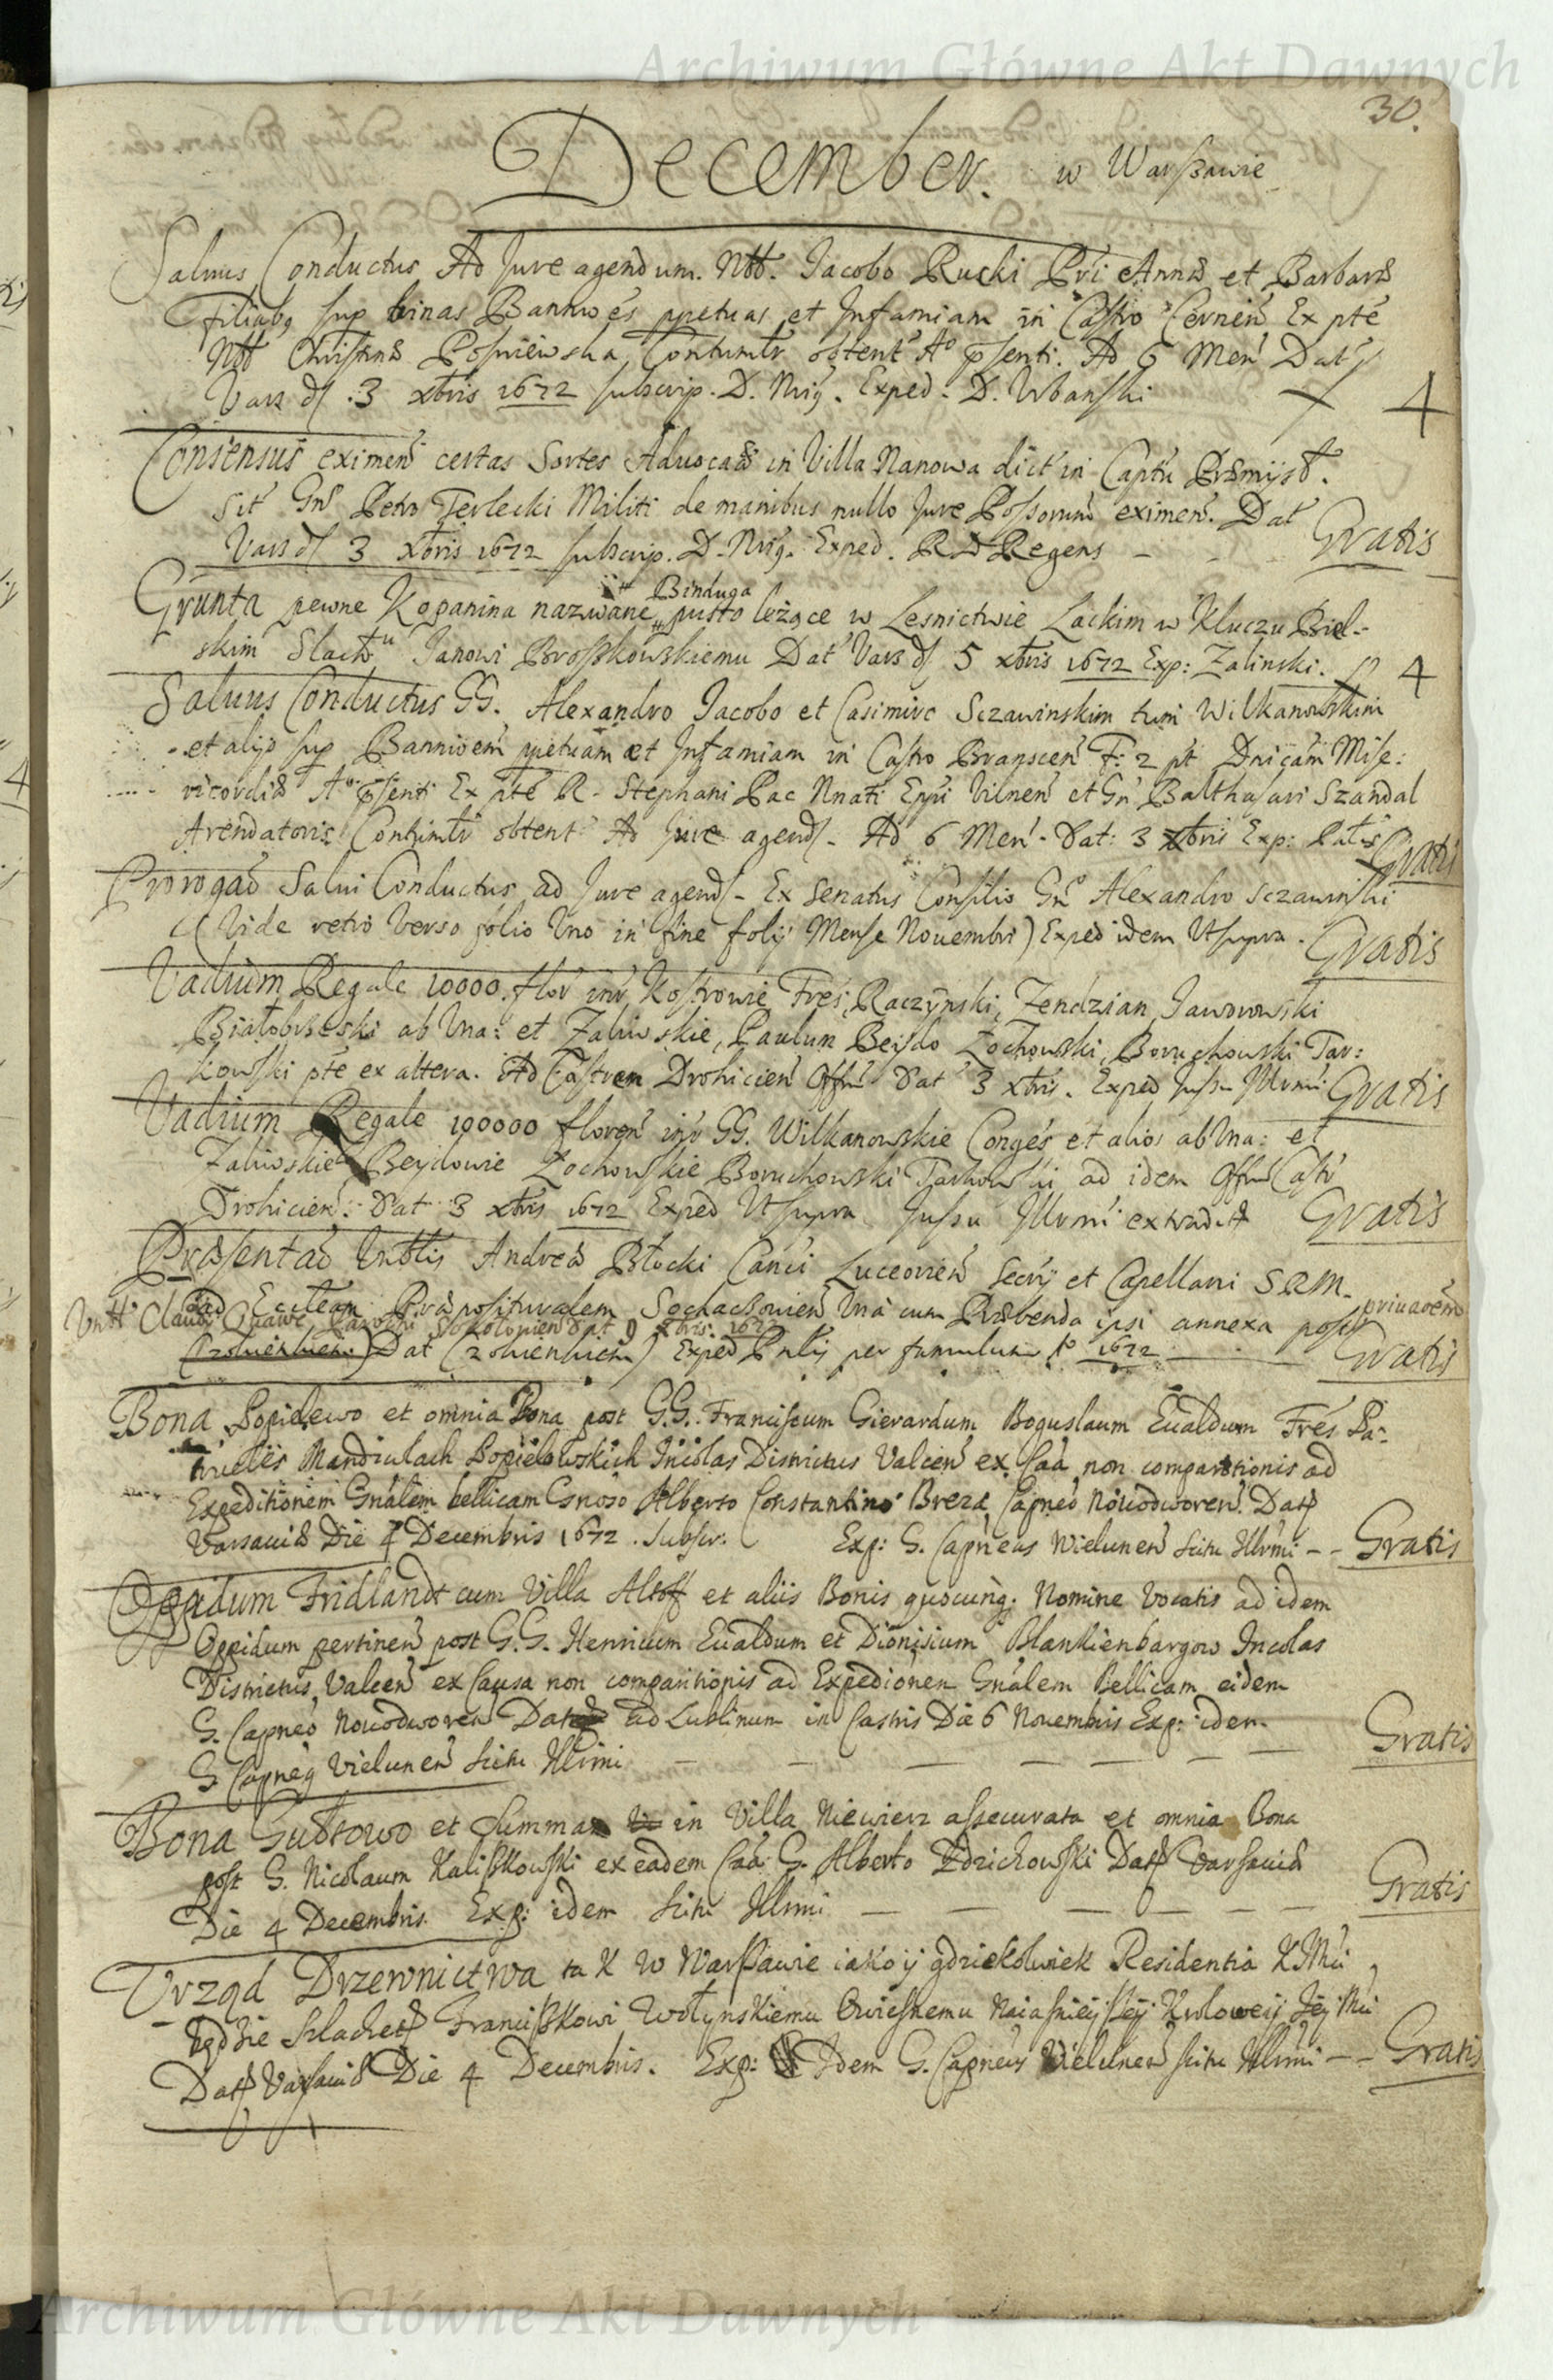 Archiwum Główne Akt Dawnych
30.
December. w Warszawie
Salvus Conductus Ad Jure agendum. Nbb. Jacobo Rucki Pri Annæ et Barbaræ
Filiabq sup binas Banniоes ppetuas et Infamiam in Castro Cernen Ex pte
Nbb Christinæ Contumtr obtent Ao psenti. Ad 6 Men Dat
Vars d. 3 xbris 1672 subscrip. D. Nrig. Exped. D. Urbanski 4
Consensus eximen certas Sortes Advocatiæ in Villa Nanowa dict in Captu Præmysl.
Sit Gnso Petro Terlecki Militi de manibus nullo Jure Possorum eximen. Dat
Vars d 3 Xbris 1672 subscrip. D. Nrig. Exped. R. D Regens - - Gratis
Binduga
Grunta pewne Kopanina nazwane pusto leżące w Lesnictwie Lackim w Kluczu Biel-
skim Slachtu Janowi Broszkowskiemu Dat Vars d 5 xbris 1672 Exp: Zalinski. 4
Salvus Conductus GG. Alexandro Jacobo et Casimiro Sczawinskim tum Wilkanowskim
et alijs sup Bannioem ppetuam et Infamiam in Castro Branscen F: 2 pt Dnicam Mise:
ricordiæ Ao psenti Ex pte R. Stephani Pac Nnati Eppi Vilnen et Gn Balthasari Szandal
Arendatoris Contumtr obtent Ad Jure agend. Ad 6 Men. Dat: 3 xbris Exp: Gratis
Prorogao Salvi Conductus ad Jure agend. Ex Senatus Consilio Gno Alexandro Sczawinski
(Vide retro Verso folio Uno in fine folij Mense Novembri) Exped idem Ut supra. Gratis
Vadium Regale 10000. flor intr Kostrowie Fres, Raczynski, Zendzian Jaworowski
Białobrzeski ab Una: et Zaliwskie, Paulum Beydo Zochowski, Boruchowski Tar:
kowski pte ex altera. Ad Castren Drohicien Offm Dat 3 xbris. Exped Jussu Illrmi Gratis
Vadium Regale 100000 floren intr GG. Wilkanowskie Conges et alios ab Una: et
Zaliwskie Beydowie Zochowskie Boruchowski Tarkowski ad idem Offm Castr
Drohicien: Dat 3 xbris 1672 Exped Ut supra Jussu Illrmi extradit Gratis
Præsentao Vnblis Andreæ Błocki Canci Luceorien Secrij et Capellani SRM.
ad Eccleam Præposituralem Sochaczovien Una cum Præbenda ipsi annexa post privaoem
Dat Exped per famulum Ao 1672 Gratis
Bona Popielewo et omnia Bona post G.G. Franciscum Gierardum Boguslaum Evaldum Fres Pa-
trueles Mandiulach Popielowskich Incolas Districtus Valcen ex Caa non comparitionis ad
Expeditionem Gnalem bellicam Gnoso Alberto Constantino Breza Capneo Novodworen. Dat
Varsaviæ Die 4 Decembris 1672. Subscr: Exp: G. Capneus Wielunen scitu Illrmi -- Gratis
Oppidum Fridlandt cum Villa Altoff et aliis Bonis quocunq. Nomine Vocatis ad idem
Oppidum pertinen post G.G. Henricum Evaldum et Dionisium Blankienbargow Incolas
Districtus Valcen ex Causa non comparitionis ad Expedionem Gnalem Bellicam eidem
G. Capneo Novodworen Dat ad Lublinum in Castris Die 6 Novembris Exp: idem
G Capneq Vielunen scitu Illrmi — — — — — — Gratis
Bona Gudtowo et Summa in Villa Niewierz assecurata et omnia Bona
post G. Nicolaum Kaliszkowski ex eadem Caa G. Alberto Zdzichowski Dat Varsaviæ
Die 4 Decembris. Exp: idem scitu Illrmi — — — — — Gratis
Urząd Drzewnictwa ta K W Warszawie iako ij gdziekolwiek Residentia KJMci
będzie Szlachet Franciszkowi Wołynskiemu Naiasnieiszey Krolowey Jej Mci
Dat Varsaviæ Die 4 Decembris. Exp: Idem G. Capneus Wielunen scitu Illrmi -- Gratis
Archiwum Główne Akt Dawnych